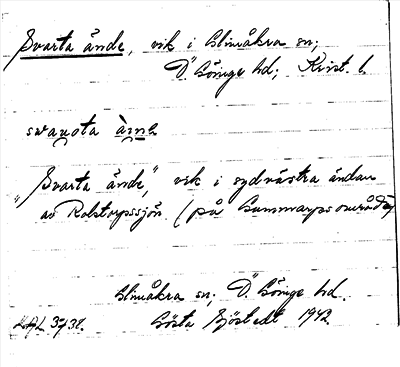 Svarta ände, vik i Glimåkra sn;
Ö. Göinge hd; Krist. l.
svaʀta än
"Svarta ände", vik i sydvästra ändan
av Rolstorpssjön (på Gummarpsområde)
Glimåkra sn; Ö. Göinge hd.
L.A.L. 3732. Gösta Sjöstedt 1942